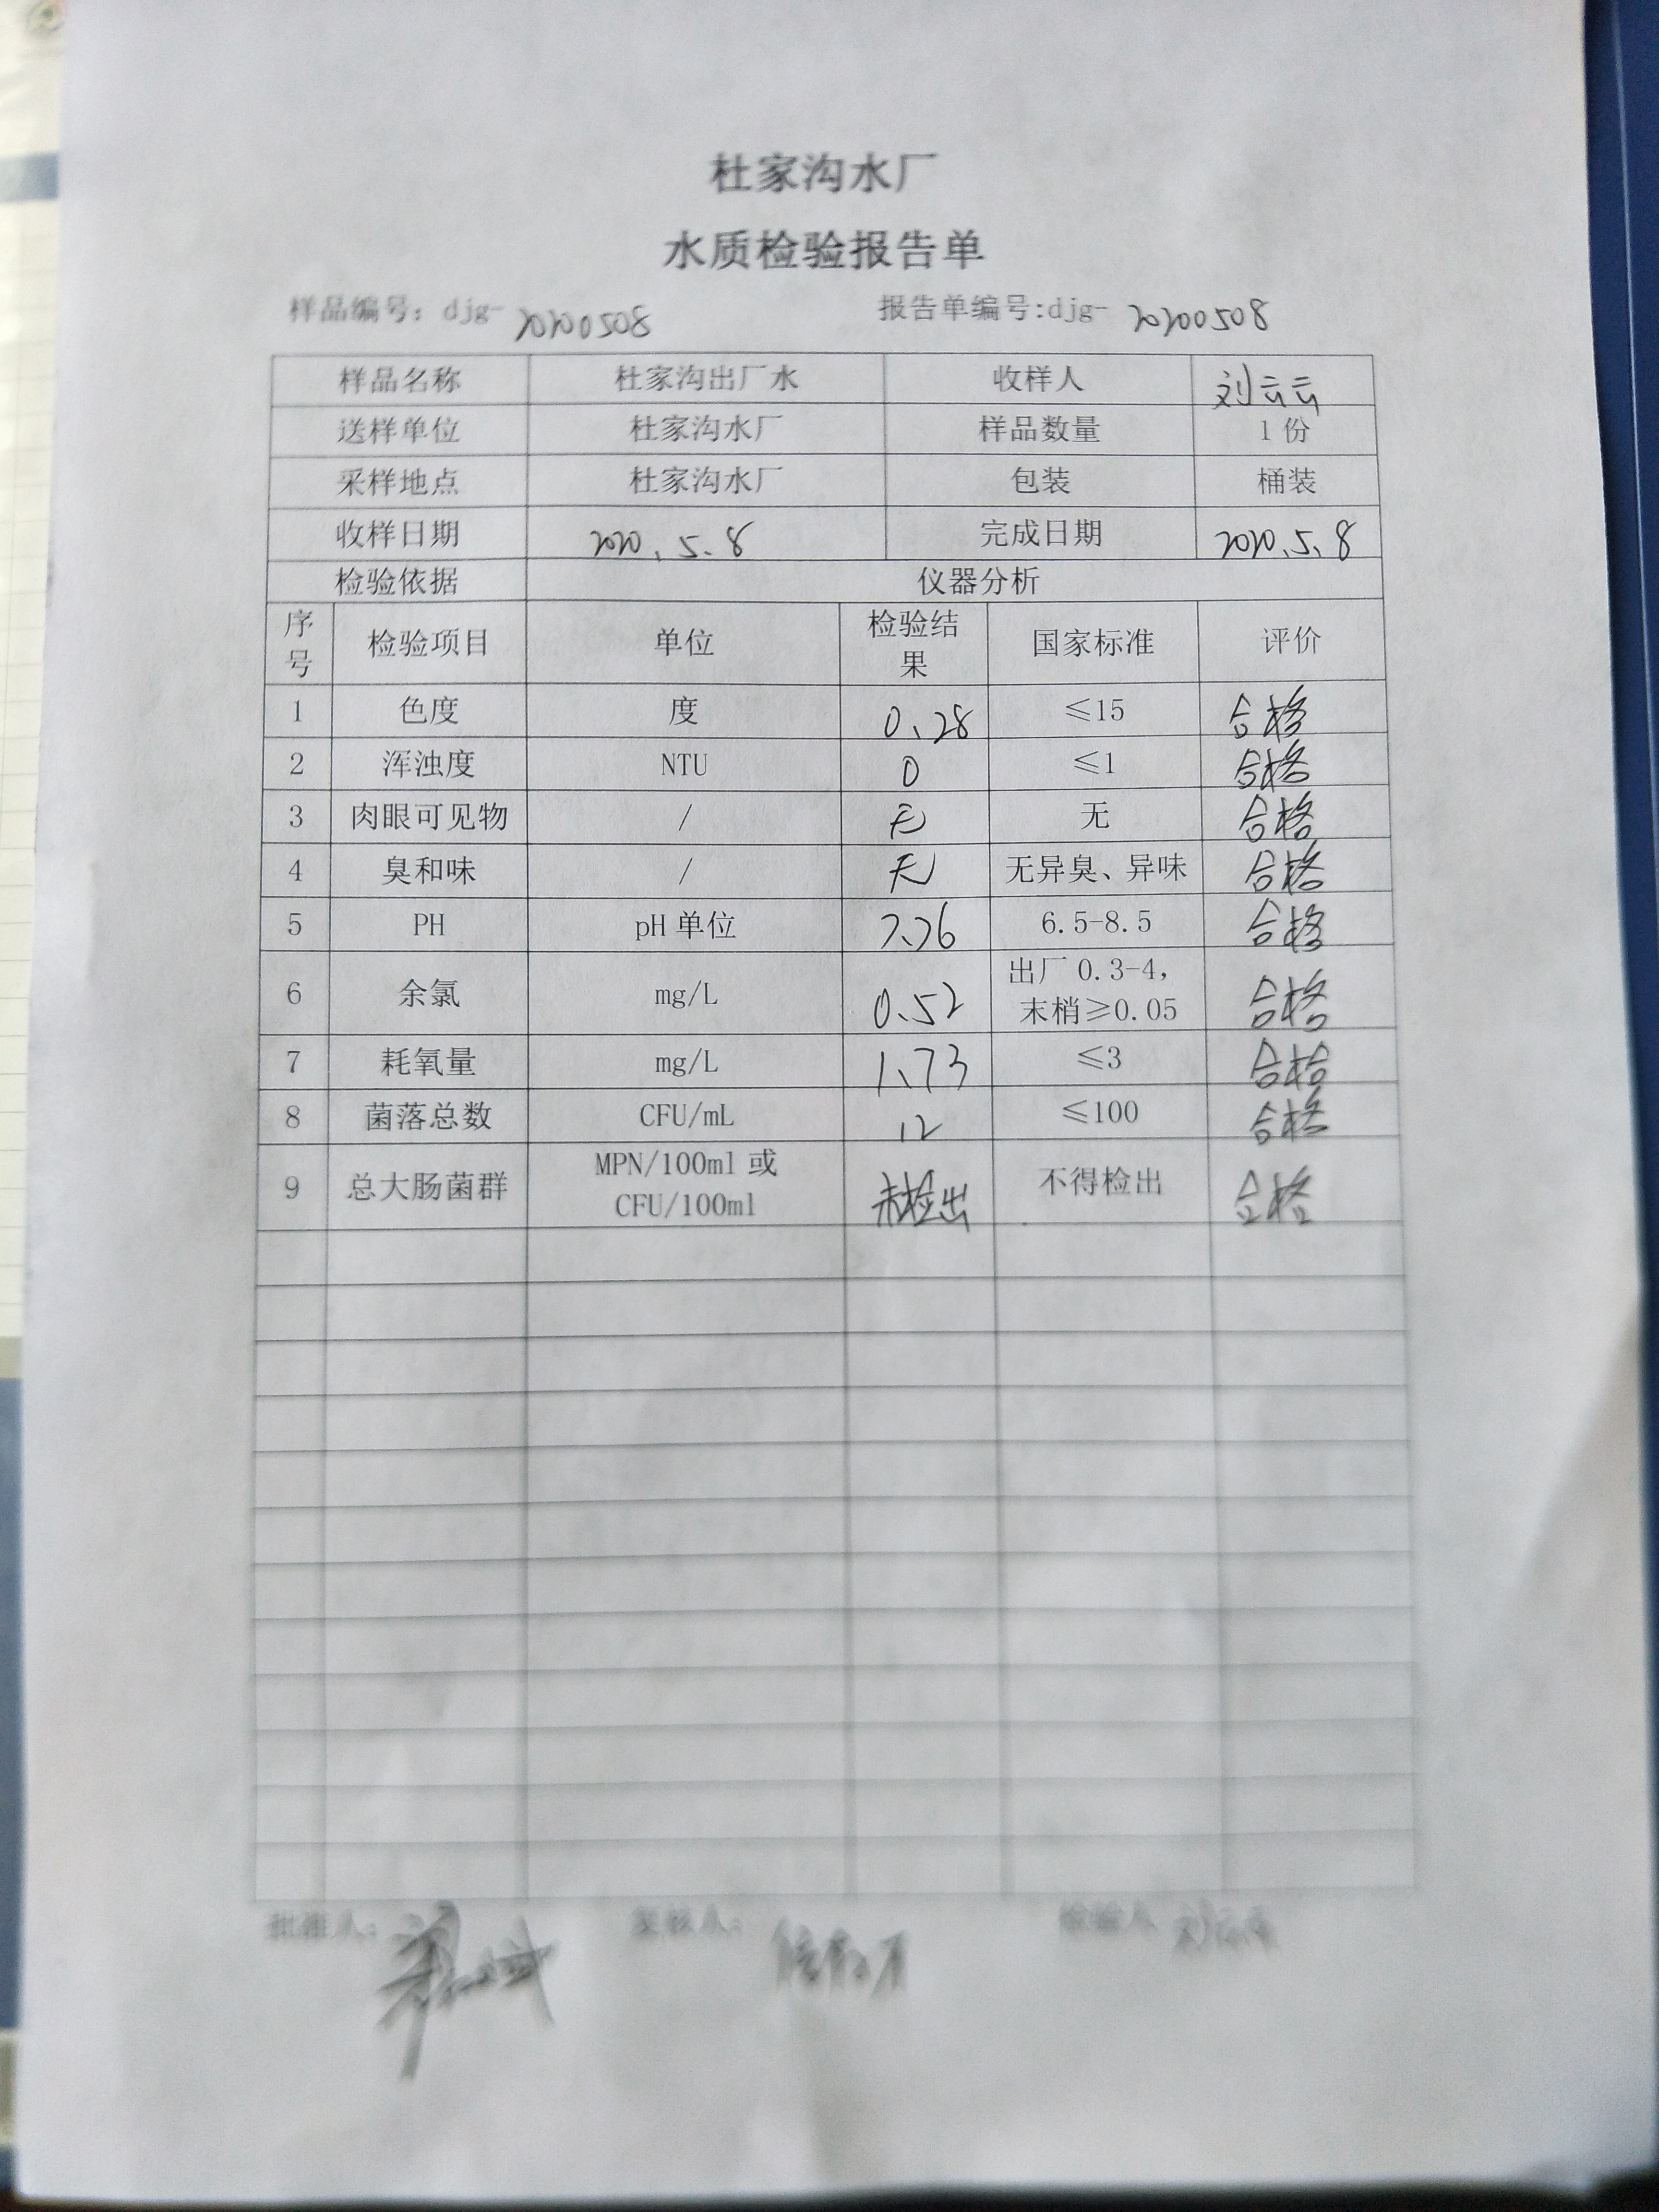 杜家沟水厂
水质检验报告单
样品编号：djg- 20200508 报告单编号:djg- 20200508
样品名称 杜家沟出厂水 收样人 刘云云
送样单位 杜家沟水厂 样品数量 1 份
采样地点 杜家沟水厂 包装 桶装
收样日期 2020.5.8 完成日期 2020.5.8
检验依据 仪器分析
序号 检验项目 单位 检验结果 国家标准 评价
1 色度 度 0.28 ≤15 合格
2 浑浊度 NTU 0 ≤1 合格
3 肉眼可见物 / 无 无 合格
4 臭和味 / 无 无异臭、异味 合格
5 PH pH 单位 7.76 6.5-8.5 合格
6 余氯 mg/L 0.52 出厂 0.3-4，末梢≥0.05 合格
7 耗氧量 mg/L 1.73 ≤3 合格
8 菌落总数 CFU/mL 12 ≤100 合格
9 总大肠菌群 MPN/100ml 或 CFU/100ml 未检出 不得检出 合格
批准人： 复核人： 检验人 刘云云